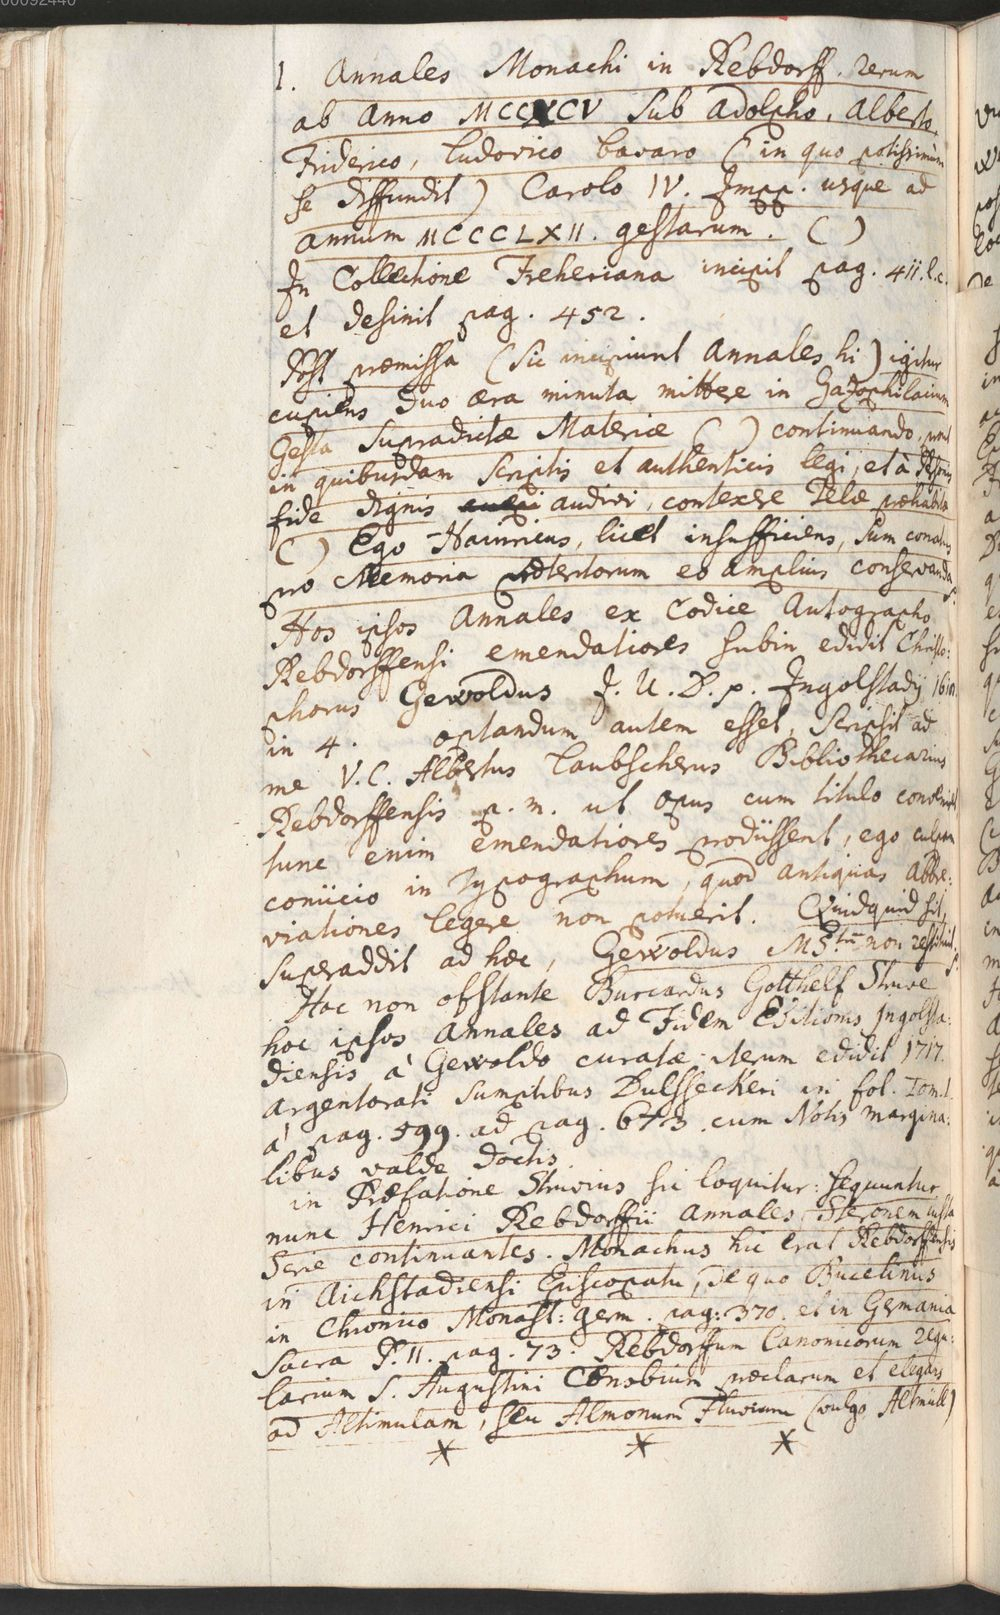 00092440
1. Annales Monachi in Rebdorff. rerum
ab Anno MCCXCV sub Adolpho, Alberto,
Friderico, Ludovico bavaro (in quo potissimum
se diffundit) Carolo IV. Impp. usque ad
annum MCCCLXII. gestarum. ( )
In Collectione Freheriana incipit pag. 411. l.c.
et desinit pag. 452.
Post præmissa (sic incipiunt Annales hi) igitur
cupiens duo æra minuta mittere in Gazophilacium
Gesta supradictæ Materiæ ( ) continuando, prout
in quibusdam scriptis et authenticis legi, et à
fide dignis audivi, contexere Telæ præhabitæ
( ) Ego Hainricus, licet insufficiens, sum conatus
pro Memoria eo amplius conservanda.
Hos ipsos Annales ex Codice Autographo
Rebdorffensi emendatiores subin edidit Christo:
phorus Gewoldus J. U. D. p. Ingolstadij
in 4. optandum autem esset, scripsit ad
me V. C. Albertus Laubscherus Bibliothecarius
Rebdorffensis p. m. ut opus cum titulo
tunc enim emendatiores prodiissent, ego culpam
coniicio in Typographum, quod antiquas abbre:
viationes legere non potuerit. Quidquid sit,
superaddit ad hæc, Gewoldus MS.tu non restituit.
Hoc non obstante Burcardus Gotthelf Struve
hoc ipsos Annales ad Fidem Editionis Ingolsta:
diensis à Gewoldo curatæ iterum edidit 1717.
Argentorati sumptibus Dulsseckeri in fol. Tom. 1.
à pag. 599. ad pag. 643. cum Notis margina:
libus valde doctis
in Præfatione Struvius sic loquitur: sequuntur
nunc Henrici Rebdorffii Annales, Steronem iusta
Serie continuantes. Monachus hic erat Rebdorffensis
in Aichstadiensi Episcopatu, de quo Bucelinus
in Chronico Monast: germ. pag: 370. et in Germania
Sacra P. II. pag. 73. Rebdorffum Canonicorum regu:
larium S. Augustini Cœnobium præclarum et elegans
ad Altimulam, seu Almonum Fluvium (vulgo Altmüll)
* * *